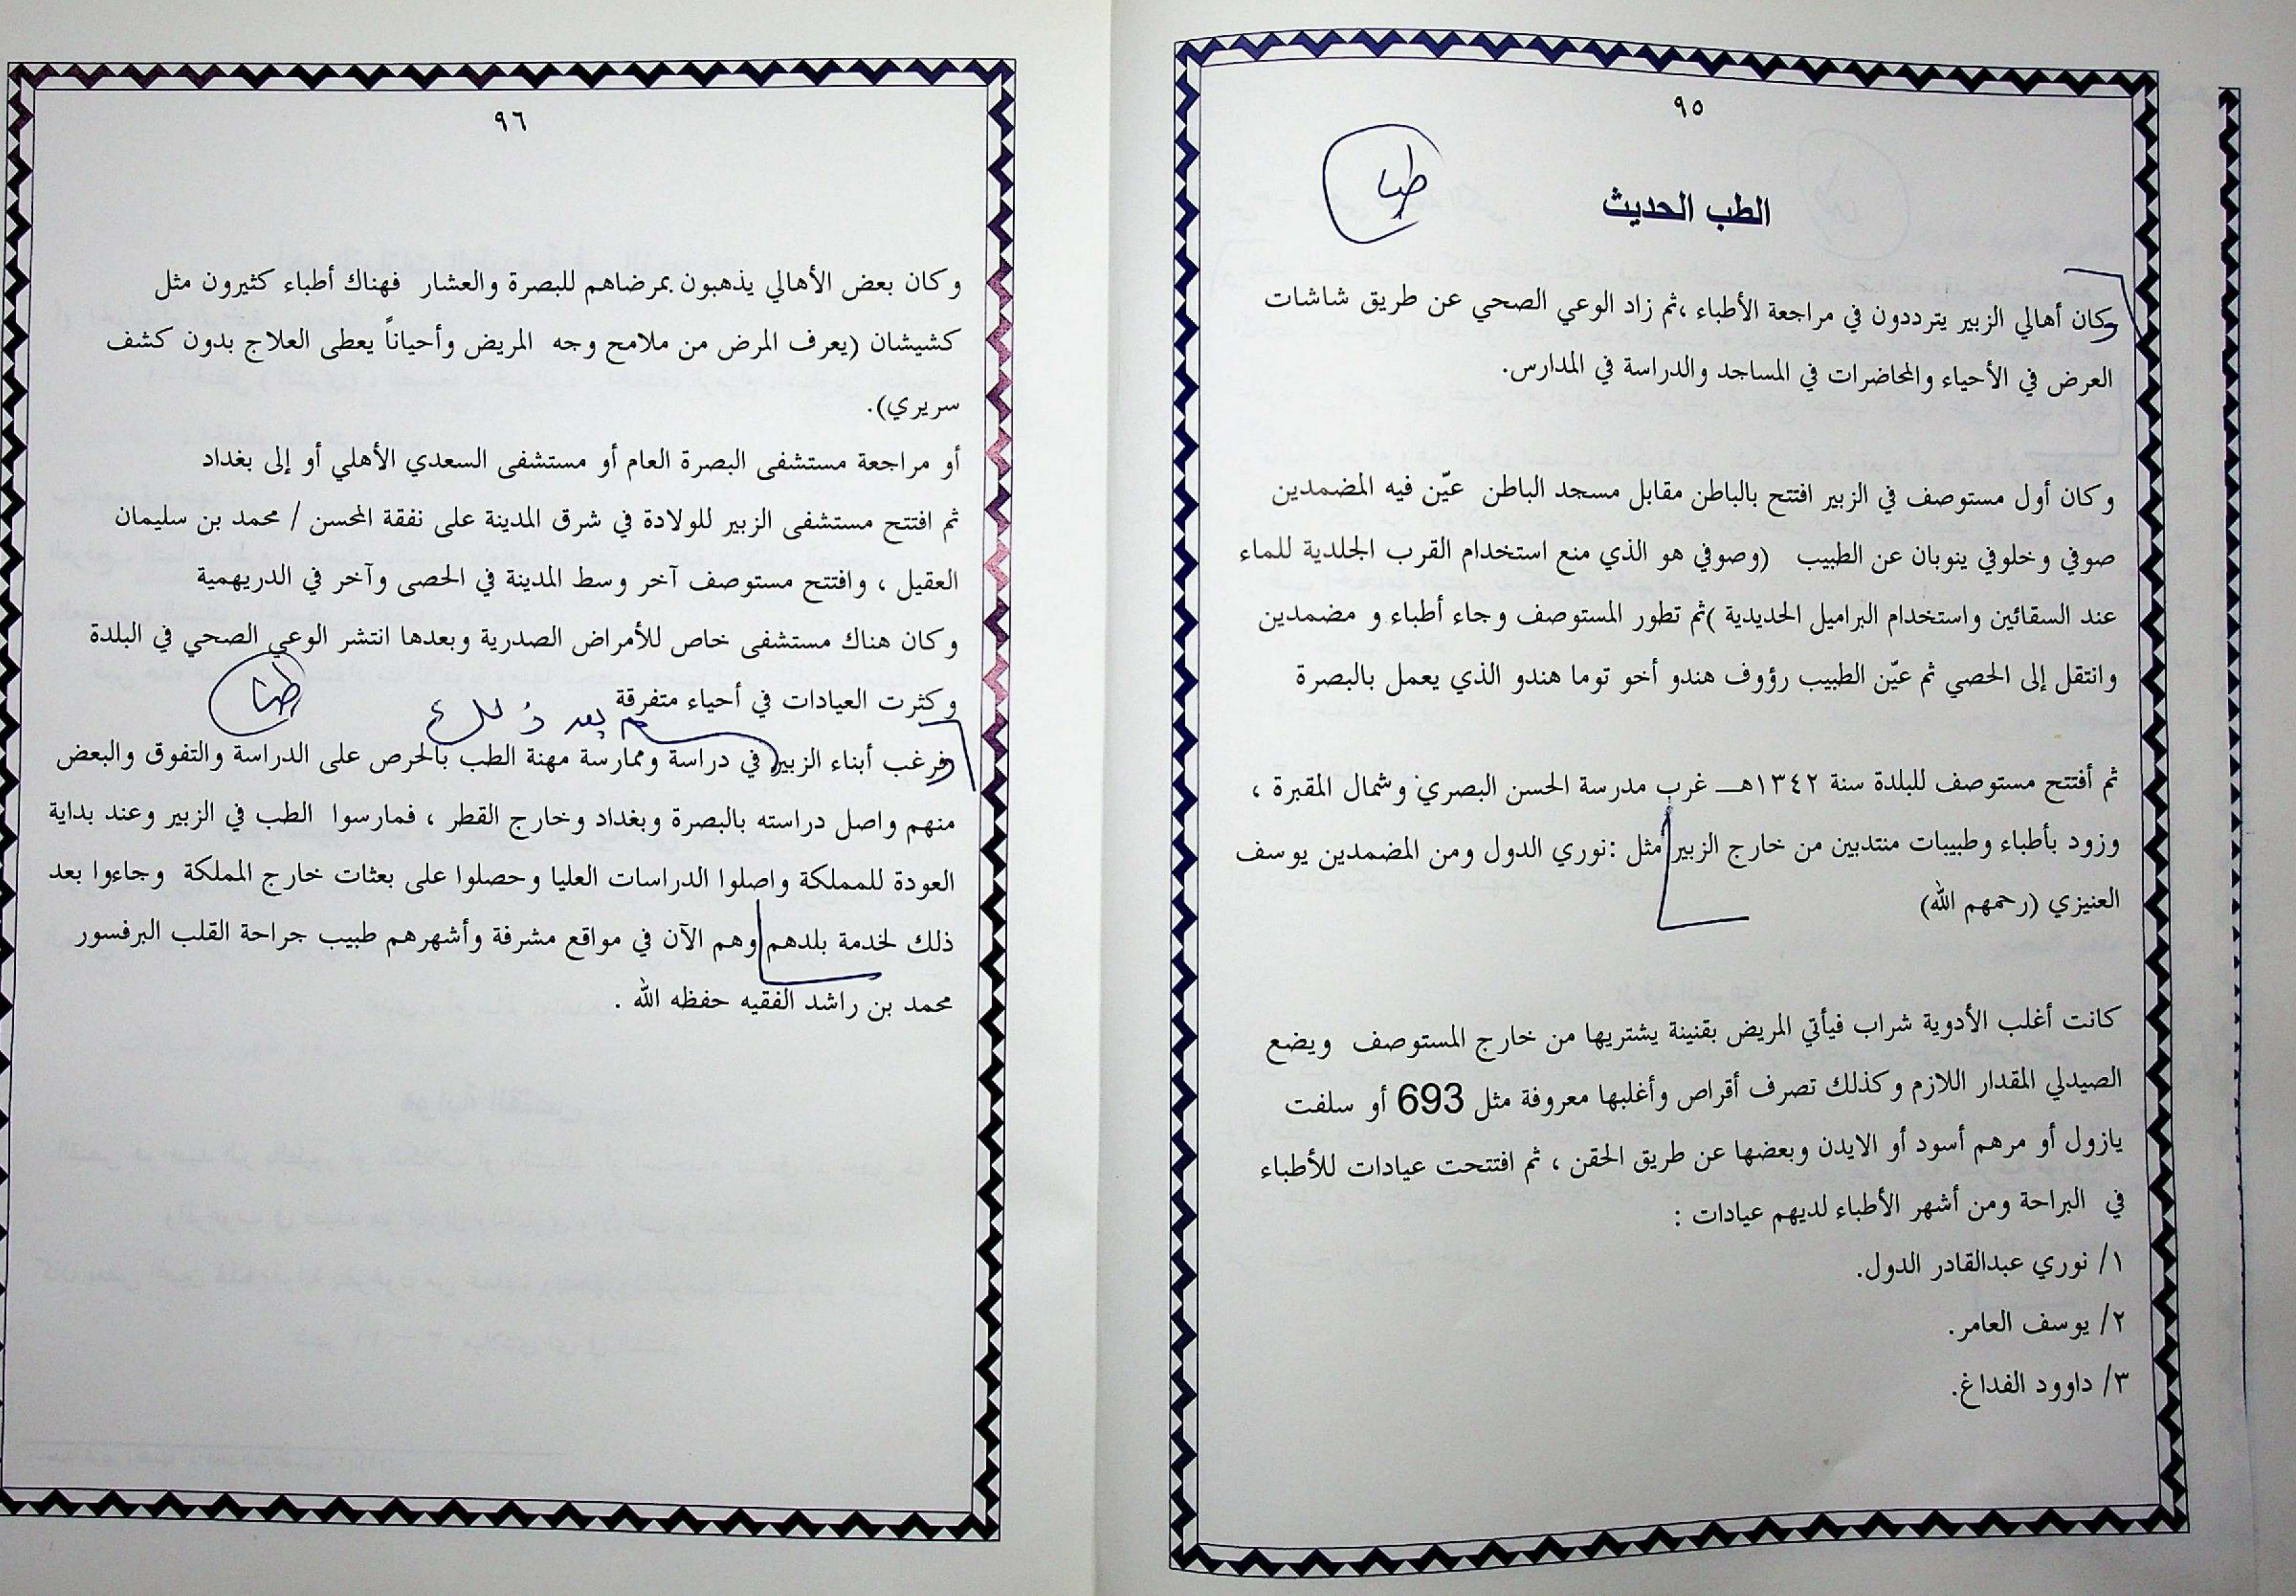 ٩٥
الطب الحديث
وكان أهالي الزبير يترددون في مراجعة الأطباء ،ثم زاد الوعي الصحي عن طريق شاشات
العرض في الأحياء والمحاضرات في المساجد والدراسة في المدارس.
وكان أول مستوصف في الزبير افتتح بالباطن مقابل مسجد الباطن عيّن فيه المضمدين
صوفي وخلوفي ينوبان عن الطبيب (وصوفي هو الذي منع استخدام القرب الجلدية للماء
عند السقائين واستخدام البراميل الحديدية )ثم تطور المستوصف وجاء أطباء و مضمدين
وانتقل إلى الحصي ثم عيّن الطبيب رؤوف هندو أخو توما هندو الذي يعمل بالبصرة
ثم أفتتح مستوصف للبلدة سنة ١٣٤٢هـ غرب مدرسة الحسن البصري وشمال المقبرة ،
وزود بأطباء وطبيبات منتدبين من خارج الزبير مثل :نوري الدول ومن المضمدين يوسف
العنيزي (رحمهم الله)
كانت أغلب الأدوية شراب فيأتي المريض بقنينة يشتريها من خارج المستوصف ويضع
الصيدلي المقدار اللازم وكذلك تصرف أقراص وأغلبها معروفة مثل 693 أو سلفت
يازول أو مرهم أسود أو الايدن وبعضها عن طريق الحقن ، ثم افتتحت عيادات للأطباء
في البراحة ومن أشهر الأطباء لديهم عيادات :
١/ نوري عبدالقادر الدول.
٢/ يوسف العامر.
٣/ داوود الفداغ.
٩٦
وكان بعض الأهالي يذهبون بمرضاهم للبصرة والعشار فهناك أطباء كثيرون مثل
كشيشان (يعرف المرض من ملامح وجه المريض وأحياناً يعطى العلاج بدون كشف
سريري).
أو مراجعة مستشفى البصرة العام أو مستشفى السعدي الأهلي أو إلى بغداد
ثم افتتح مستشفى الزبير للولادة في شرق المدينة على نفقة المحسن / محمد بن سليمان
العقيل ، وافتتح مستوصف آخر وسط المدينة في الحصى وآخر في الدريهمية
وكان هناك مستشفى خاص للأمراض الصدرية وبعدها انتشر الوعي الصحي في البلدة
وكثرت العيادات في أحياء متفرقة
بعد ذلك
فرغب أبناء الزبير في دراسة وممارسة مهنة الطب بالحرص على الدراسة والتفوق والبعض
منهم واصل دراسته بالبصرة وبغداد وخارج القطر ، فمارسوا الطب في الزبير وعند بداية
العودة للمملكة واصلوا الدراسات العليا وحصلوا على بعثات خارج المملكة وجاءوا بعد
ذلك لخدمة بلدهم وهم الآن في مواقع مشرفة وأشهرهم طبيب جراحة القلب البرفسور
محمد بن راشد الفقيه حفظه الله .